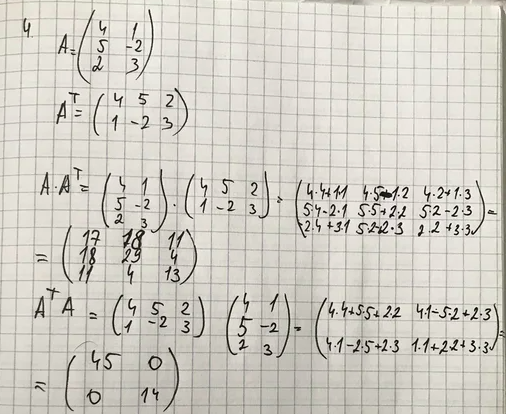 4.
A = ( 4 1
5 -2
2 3 )
Aᵀ = ( 4 5 2
1 -2 3 )
A·Aᵀ = ( 4 1
5 -2
2 3 ) · ( 4 5 2
1 -2 3 ) = ( 4·4+1·1 4·5-1·2 4·2+1·3
5·4-2·1 5·5+2·2 5·2-2·3
2·4+3·1 5·2-2·3 2·2+3·3 ) =
= ( 17 18 11
18 29 4
11 4 13 )
AᵀA = ( 4 5 2
1 -2 3 ) ( 4 1
5 -2
2 3 ) = ( 4·4+5·5+2·2 4·1-5·2+2·3
4·1-2·5+2·3 1·1+2·2+3·3 ) =
= ( 45 0
0 14 )